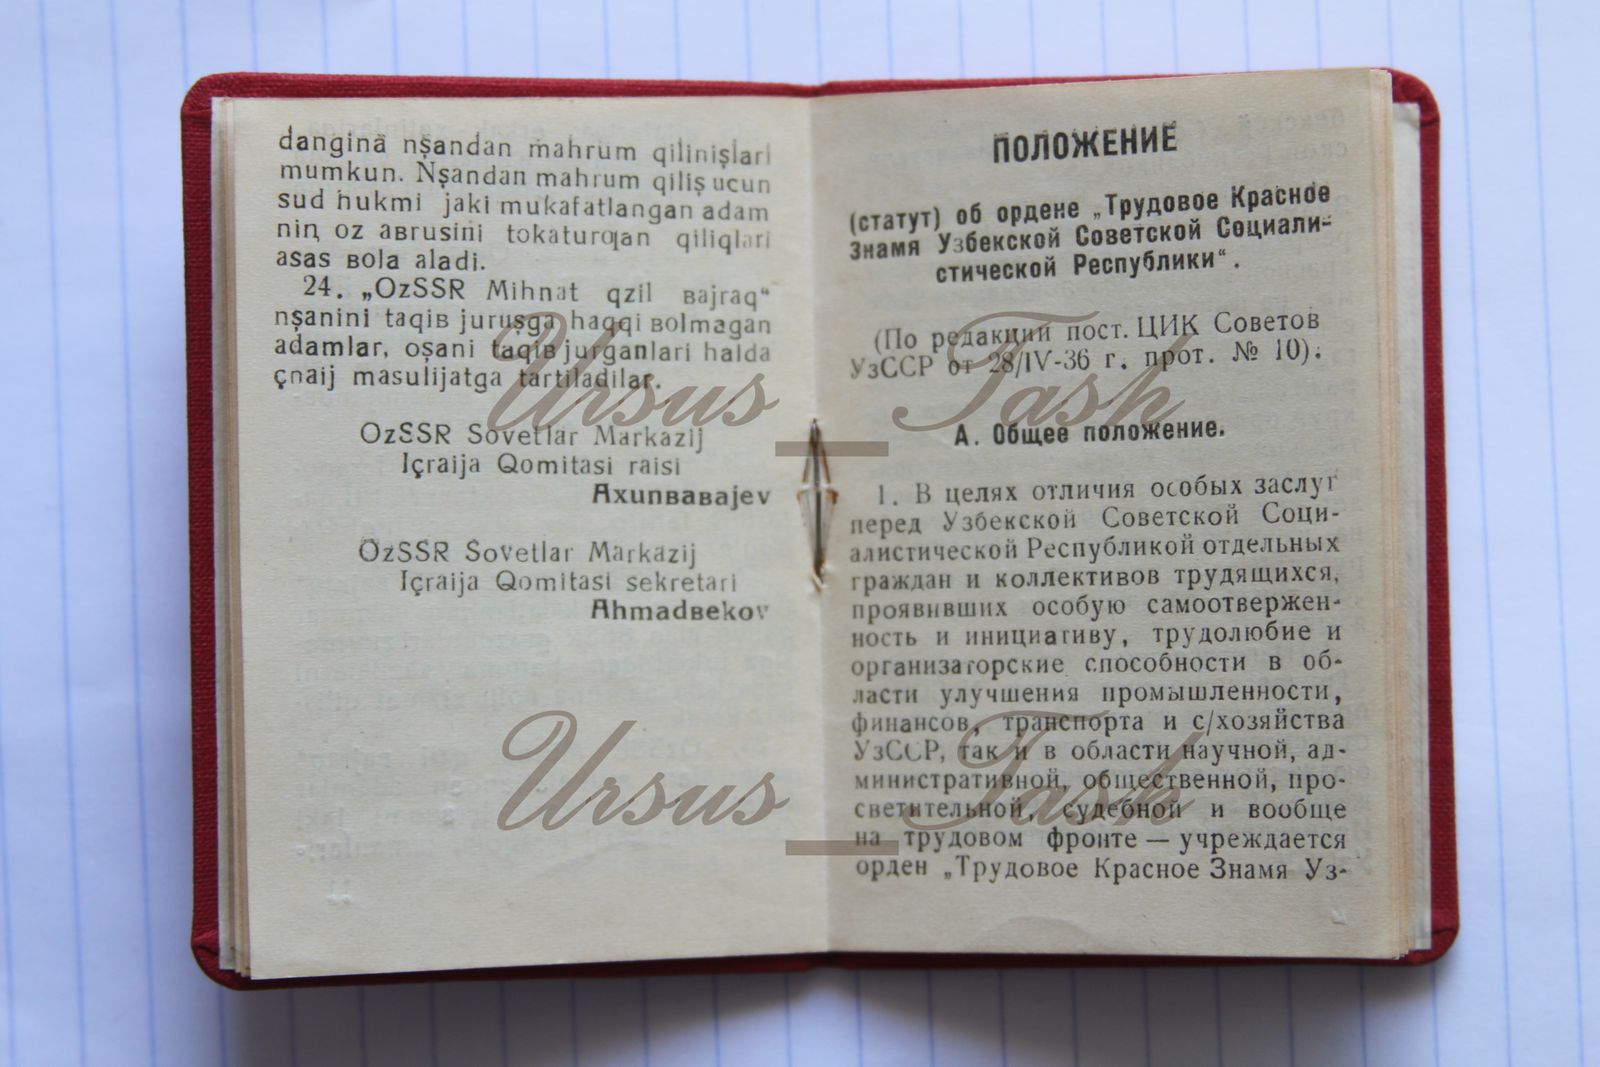 dangina nşandan mahrum qilinişlari
mumkun. Nşandan mahrum qiliş ucun
sud hukmi jaki mukafatlangan adam
niꞑ oz aʙrusini tokaturƣan qiliqlari
asas ʙola aladi.
24. „OzSSR Mihnat qzil ʙajraq“
nşanini taqiʙ juruşga haqqi ʙolmagan
adamlar, oşani taqiʙ jurganlari halda
çnaij masulijatga tartiladilar.
OzSSR Sovetlar Markazij
Içraija Qomitasi raisi
Axunʙaʙajev
OzSSR Sovetlar Markazij
Içraija Qomitasi sekretari
Ahmadʙekov
ПОЛОЖЕНИЕ
(статут) об ордене „Трудовое Красное
Знамя Узбекской Советской Социали-
стической Республики“.
(По редакции пост. ЦИК Советов
УзССР от 28/IV-36 г. прот. № 10).
А. Общее положение.
1. В целях отличия особых заслуг
перед Узбекской Советской Соци-
алистической Республикой отдельных
граждан и коллективов трудящихся,
проявивших особую самоотвержен-
ность и инициативу, трудолюбие и
организаторские способности в об-
ласти улучшения промышленности,
финансов, транспорта и с/хозяйства
УзССР, так и в области научной, ад-
министративной, общественной, про-
светительной, судебной и вообще
на трудовом фронте — учреждается
орден „Трудовое Красное Знамя Уз-
Ursus_Tash
Ursus_Tash